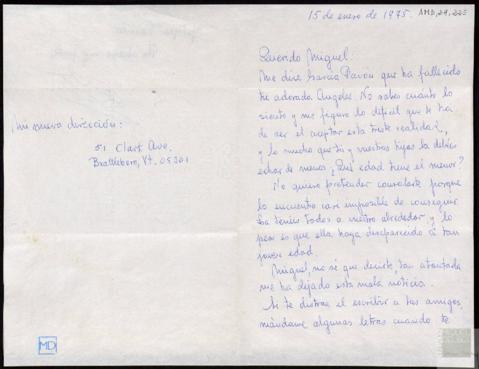 mi nueva dirección:
51 Clark Ave.
Brattleboro, Vt. 05301
MD
15 de enero de 1975.
AMD, 29, 223
Querido Miguel:
Me dice García Pavón que ha fallecido
tu adorada Angeles. No sabes cuanto lo
siento y me figuro lo difícil que te ha
de ser el aceptar esta triste realidad,
y lo mucho que tú y vuestros hijos la debéis
echar de menos. ¿Qué edad tiene el menor?
No quiero pretender consolarte porque
lo encuentro casi imposible de conseguir
La tenéis todos a vuestro alrededor y lo
peor es que ella haya desaparecido a tan
joven edad.
Miguel, no sé que decirte, tan atontada
me ha dejado esta mala noticia.
Si te distrae el escribir a tus amigos
mándame algunas letras cuando te